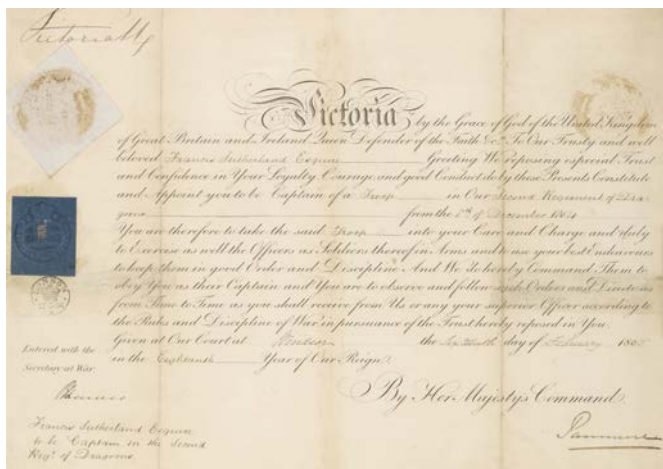 Victoria
Victoria by the Grace of God of the United Kingdom
of Great Britain and Ireland Queen Defender of the Faith &c. To Our Trusty and well
beloved Francis Sutherland Esquire Greeting We reposing especial Trust
and Confidence in Your Loyalty Courage and good Conduct do by these Presents Constitute
and Appoint you to be Captain of a Troop in Our Second Regiment of Dra-
goons from the 8th of December 1854
You are therefore to take the said Troop into your Care and Charge and duly
to Exercise as well the Officers as Soldiers thereof in Arms and to use your best Endeavours
to keep them in good Order and Discipline And We do hereby Command Them to
Obey You as their Captain and You are to observe and follow such Orders and Directions
from Time to Time as you shall receive from Us or any your superior Officer according to
the Rules and Discipline of War in pursuance of the Trust hereby reposed in You.
Given at Our Court at Windsor the day of February 1855
in the Eighteenth Year of Our Reign.
By Her Majesty's Command
Entered with the
Secretary at War
Panmure
Francis Sutherland Esquire
to be Captain in the Second
Regt. of Dragoons